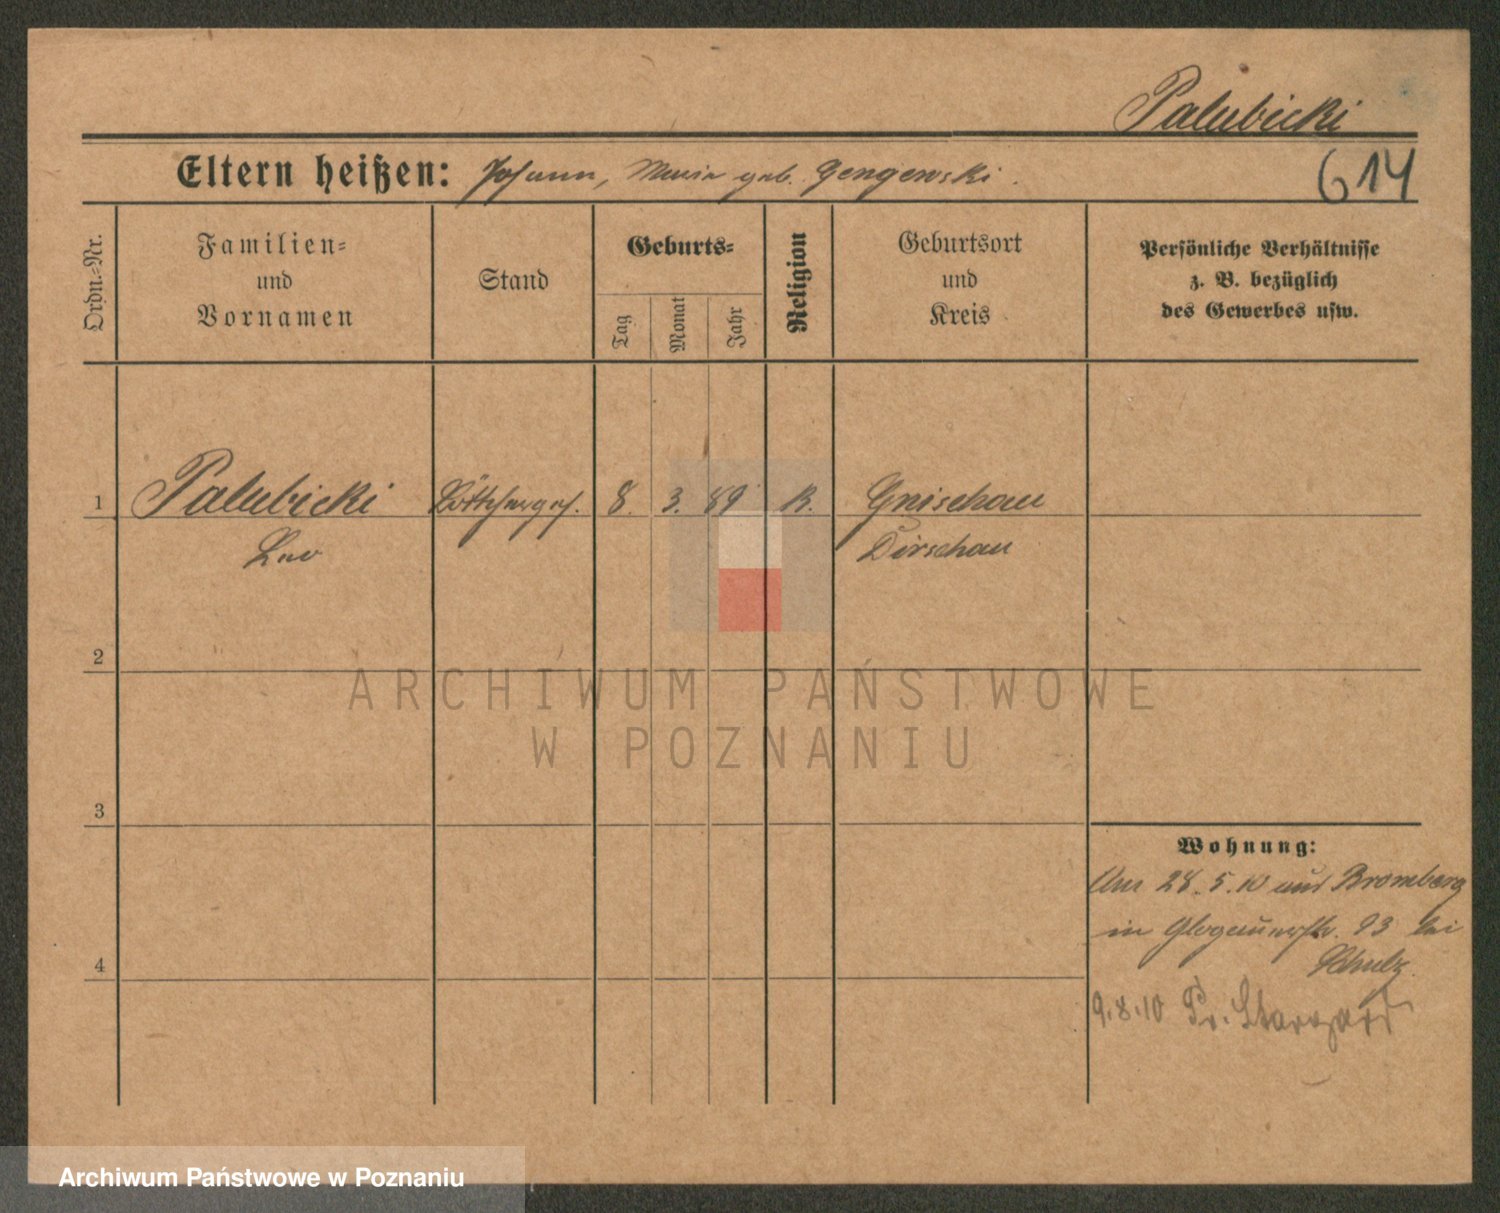 Palubicki
614
Eltern heißen: Johann, Maria geb. Gengewski.
Ordn.=Nr.
Familien=
und
Vornamen
Stand
Geburts=
Tag
Monat
Jahr
Religion
Geburtsort
und
Kreis
Persönliche Verhältnisse
z. B. bezüglich
des Gewerbes usw.
1 Palubicki Böttchergeh. 8. 3. 89 K. Gnischau
Leo Dirschau
2
ARCHIWUM PAŃSTWOWE
W POZNANIU
3
Wohnung:
Am 28.5.10 aus Bromberg
in Glogauerstr. 93 bei
Schulz.
4
9.8.10 Pr. Stargard
Archiwum Państwowe w Poznaniu